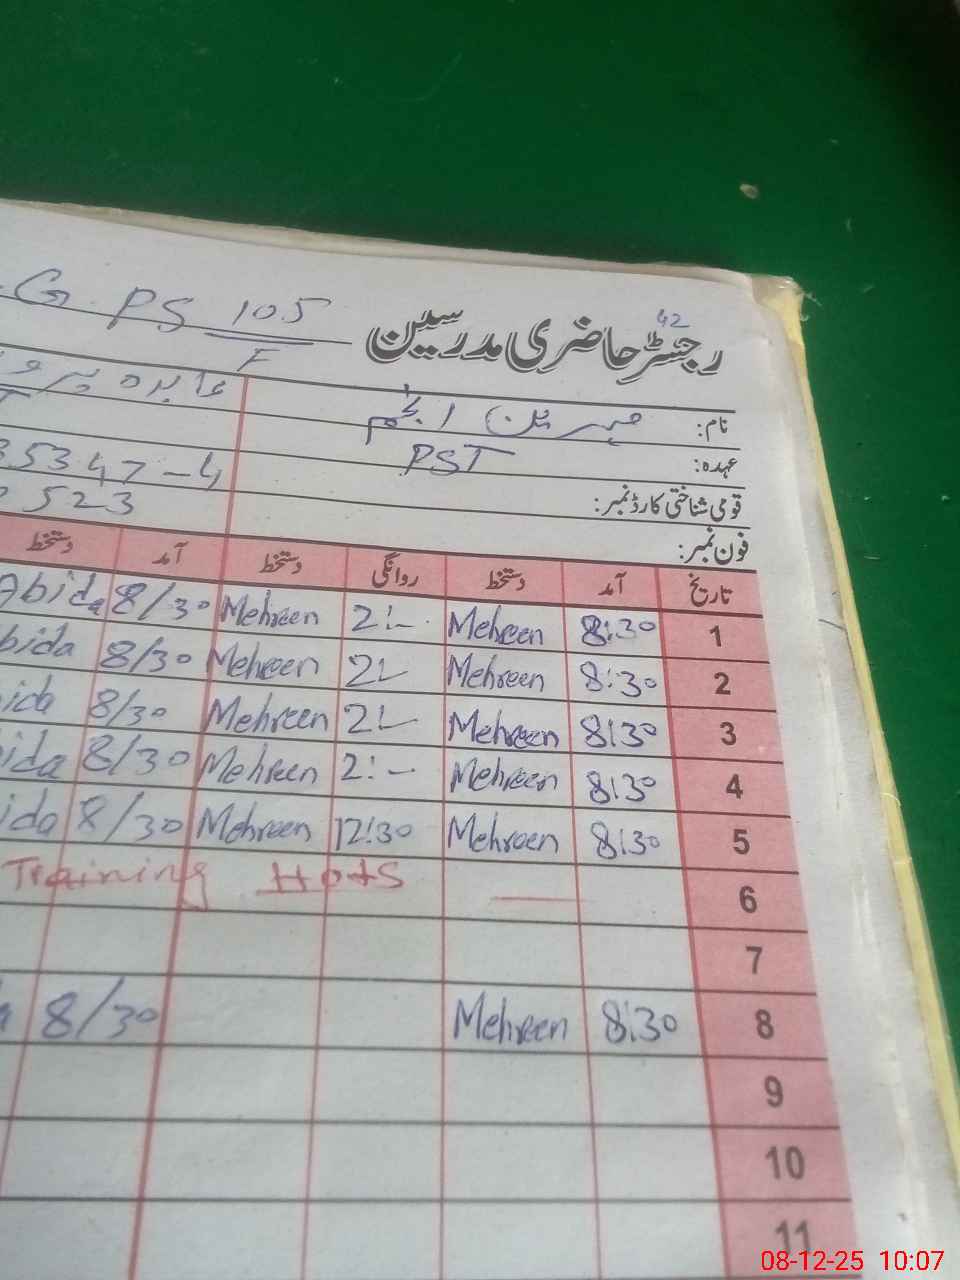 G PS 105
F
42
رجسٹر حاضری مدرسین
نام: مہرین انجم عابدہ پرو
عہدہ: PST T
قومی شناختی کارڈ نمبر: 35347-4
فون نمبر: 523
تاریخ آمد دستخط روانگی دستخط آمد دستخط
1 8:30 Mehreen 2:- Mehreen 8/30 Abida
2 8:30 Mehreen 2:- Mehreen 8/30 bida
3 8:30 Mehreen 2:- Mehreen 8/30 ida
4 8:30 Mehreen 2:- Mehreen 8/30 ida
5 8:30 Mehreen 12:30 Mehreen 8/30 ida
6 — Training Hots
7
8 8:30 Mehreen 8/30 a
9
10
11
08-12-25 10:07